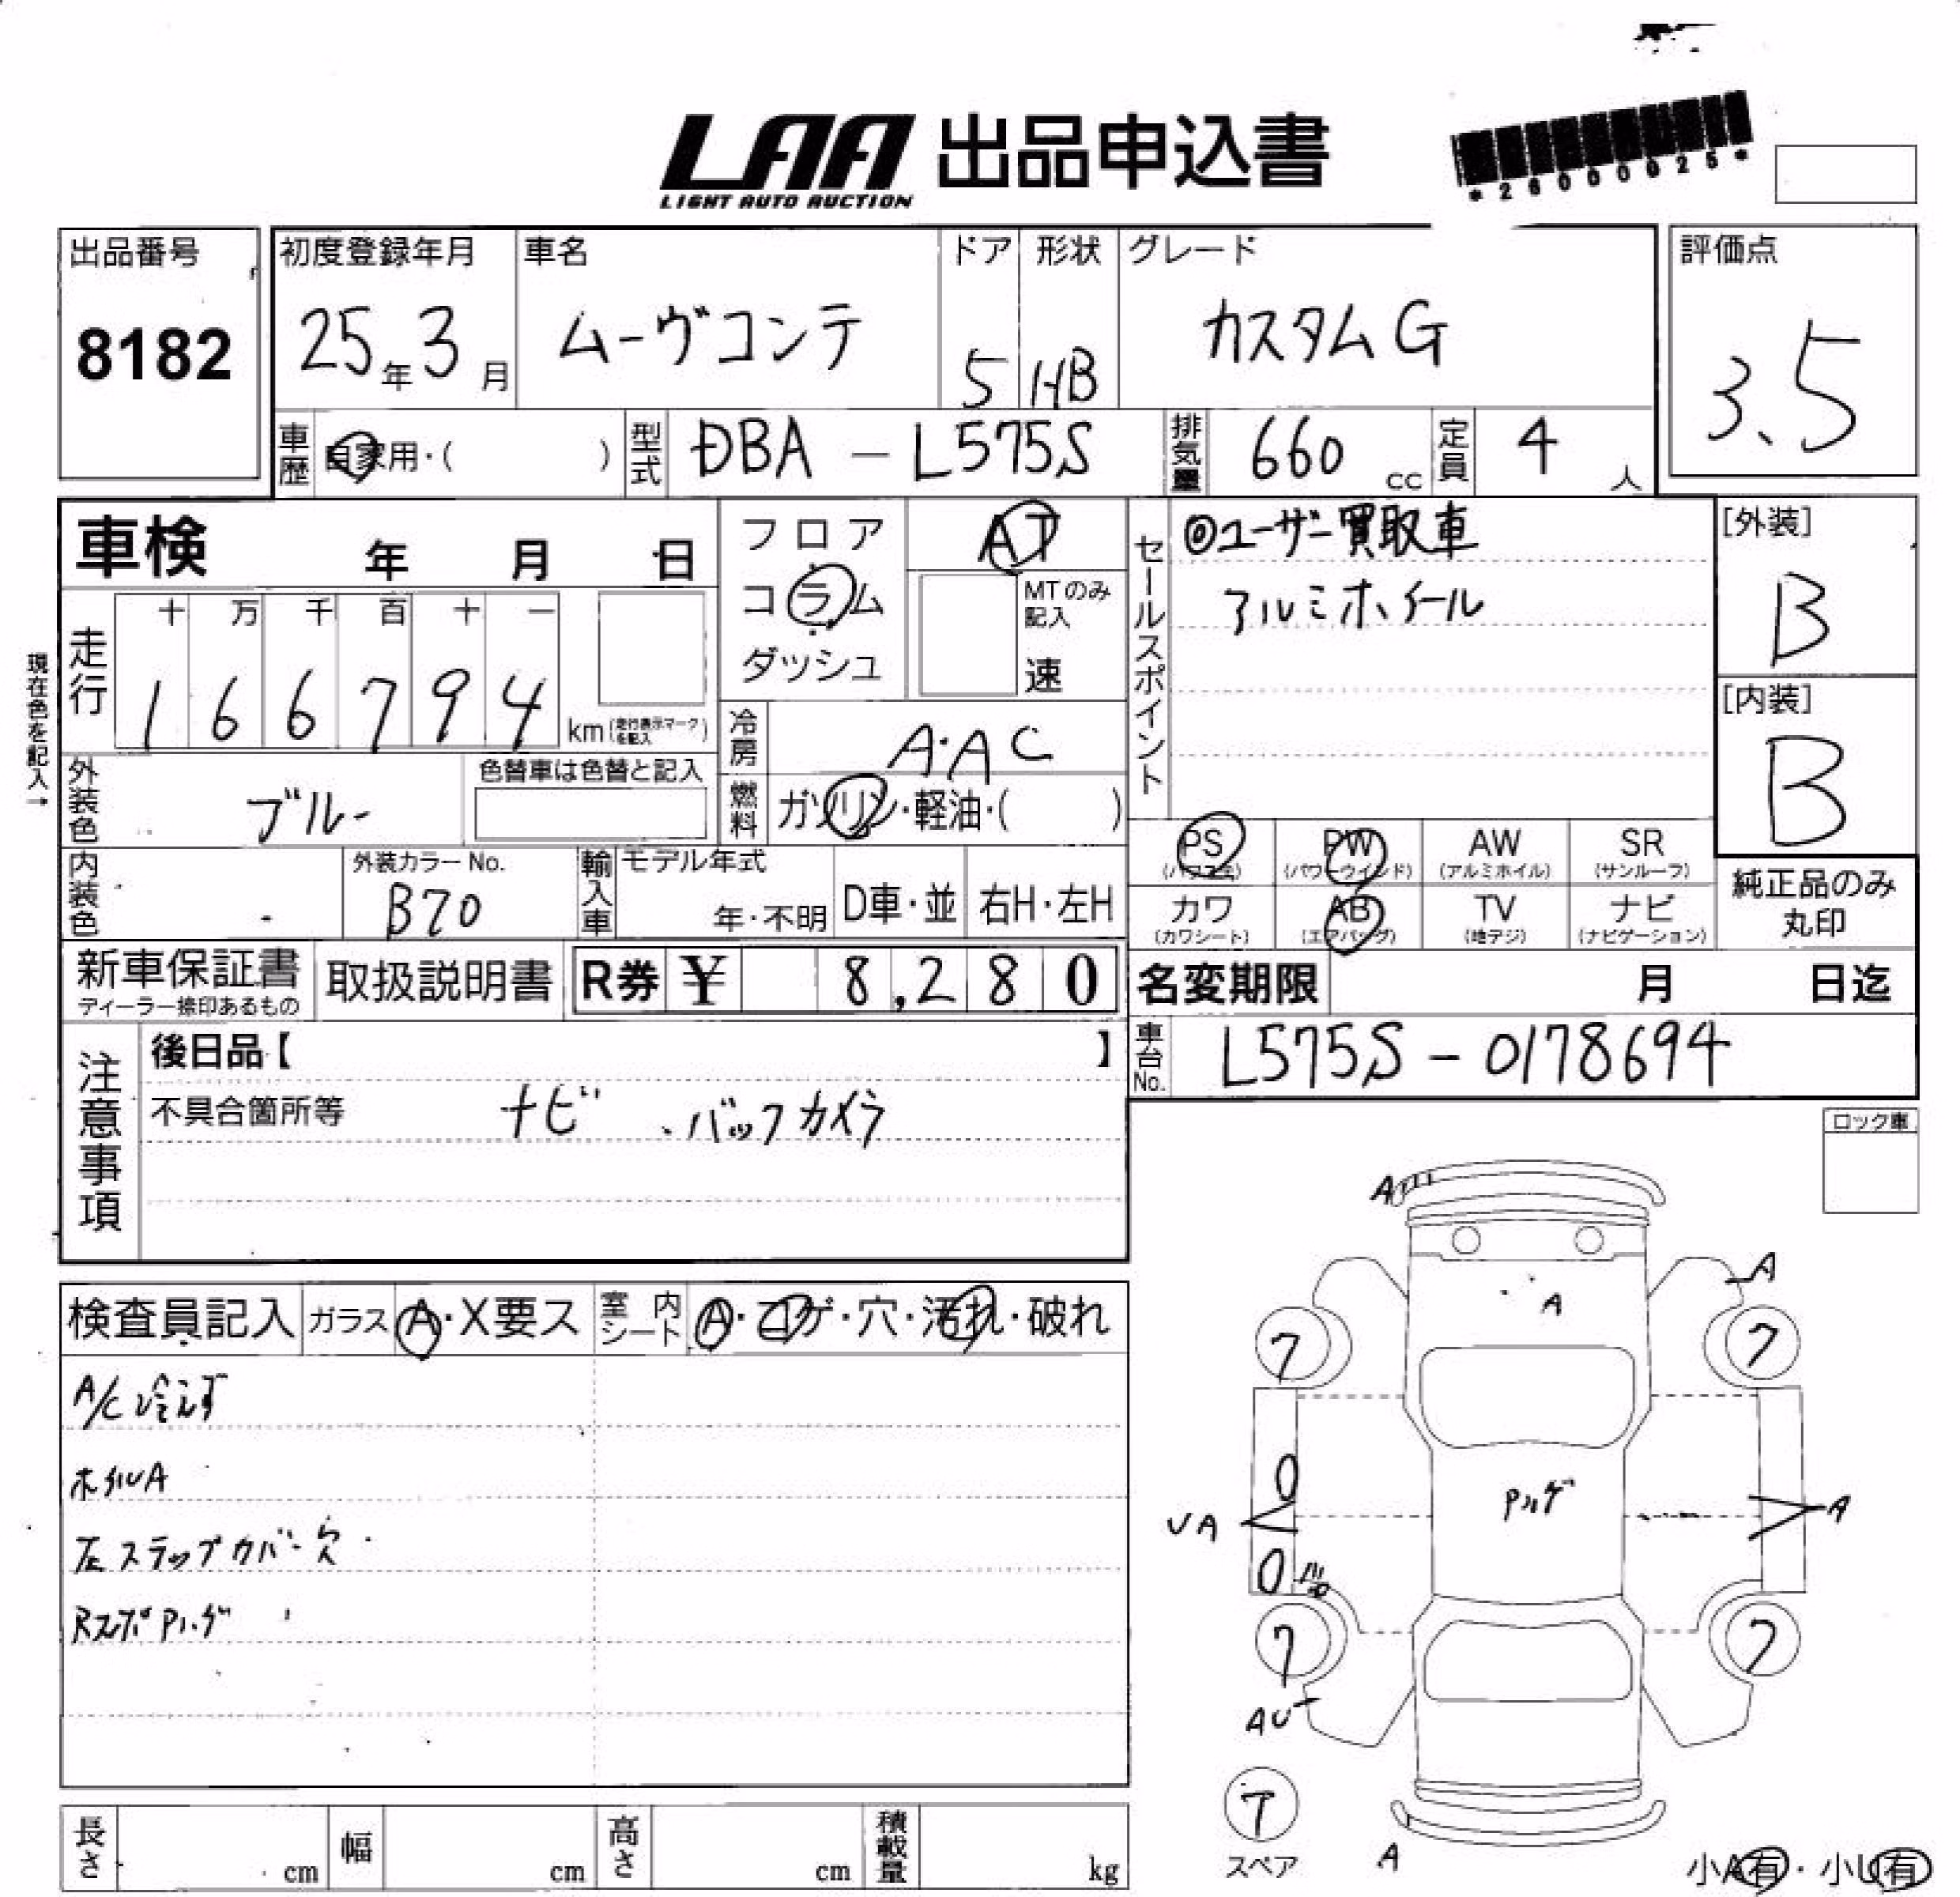 LAA 出品申込書
LIGHT AUTO AUCTION
*2600025*
出品番号
8182
初度登録年月
25年3月
車名
ムーヴコンテ
ドア
5
形状
HB
グレード
カスタムG
評価点
3.5
車歴
自家用・( )
型式
DBA-L575S
排気量
660 cc
定員
4人
車検 年 月 日
フロア
コラム
ダッシュ
AT
MTのみ記入
速
セールスポイント
◎ユーザー買取車
アルミホイール
[外装]
B
[内装]
B
現在色を記入→
走行
十万千百十一
166794
km(走行表示マークを記入)
冷房
A・AC
外装色
ブルー
色替車は色替と記入
燃料
ガソリン・軽油・( )
内装色
外装カラーNo.
B70
輸入車
モデル年式
年・不明
D車・並
右H・左H
PS (パワステ)
PW (パワーウインド)
AW (アルミホイル)
SR (サンルーフ)
カワ (カワシート)
AB (エアバッグ)
TV (地デジ)
ナビ (ナビゲーション)
純正品のみ
丸印
新車保証書
ディーラー捺印あるもの
取扱説明書
R券 ¥ 8,280
名変期限 月 日迄
車台No.
L575S-0178694
注意事項
後日品【 】
不具合箇所等
ナビ、バックカメラ
ロック車
検査員記入
ガラス
A・X要ス
室内シート
A・コゲ・穴・汚れ・破れ
A/C冷えず
ホイルA
左ステップカバー欠
RスポPハゲ
A
A
A
7
7
0
UA
Pハゲ
A
0
7
7
AU
T
スペア
A
小A有・小U有
長さ cm
幅 cm
高さ cm
積載量 kg